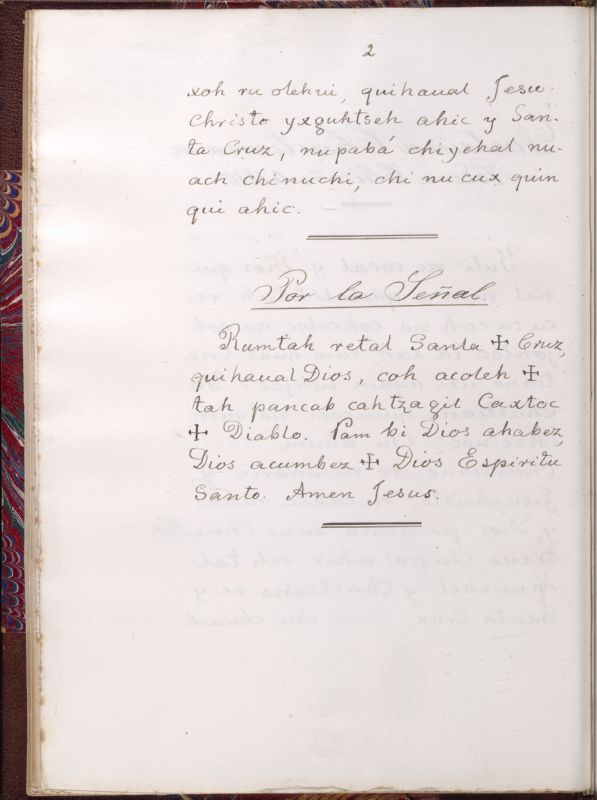 2
xoh ru olehui, quihaual Jesu-
christo yxguhtseh ahic y San-
ta Cruz, nupabá chiyehal nu-
ach chinuchi, chi nu cux quin
qui ahic.
Por la Señal
Rumtah retal Santa ✠ Cruz,
quihaual Dios, coh acoleh ✠
tah pancab cahtzagil Caxtoc
✠ Diablo. Pam bi Dios ahabez,
Dios acumbez ✠ Dios Espiritu
Santo. Amen Jesus.